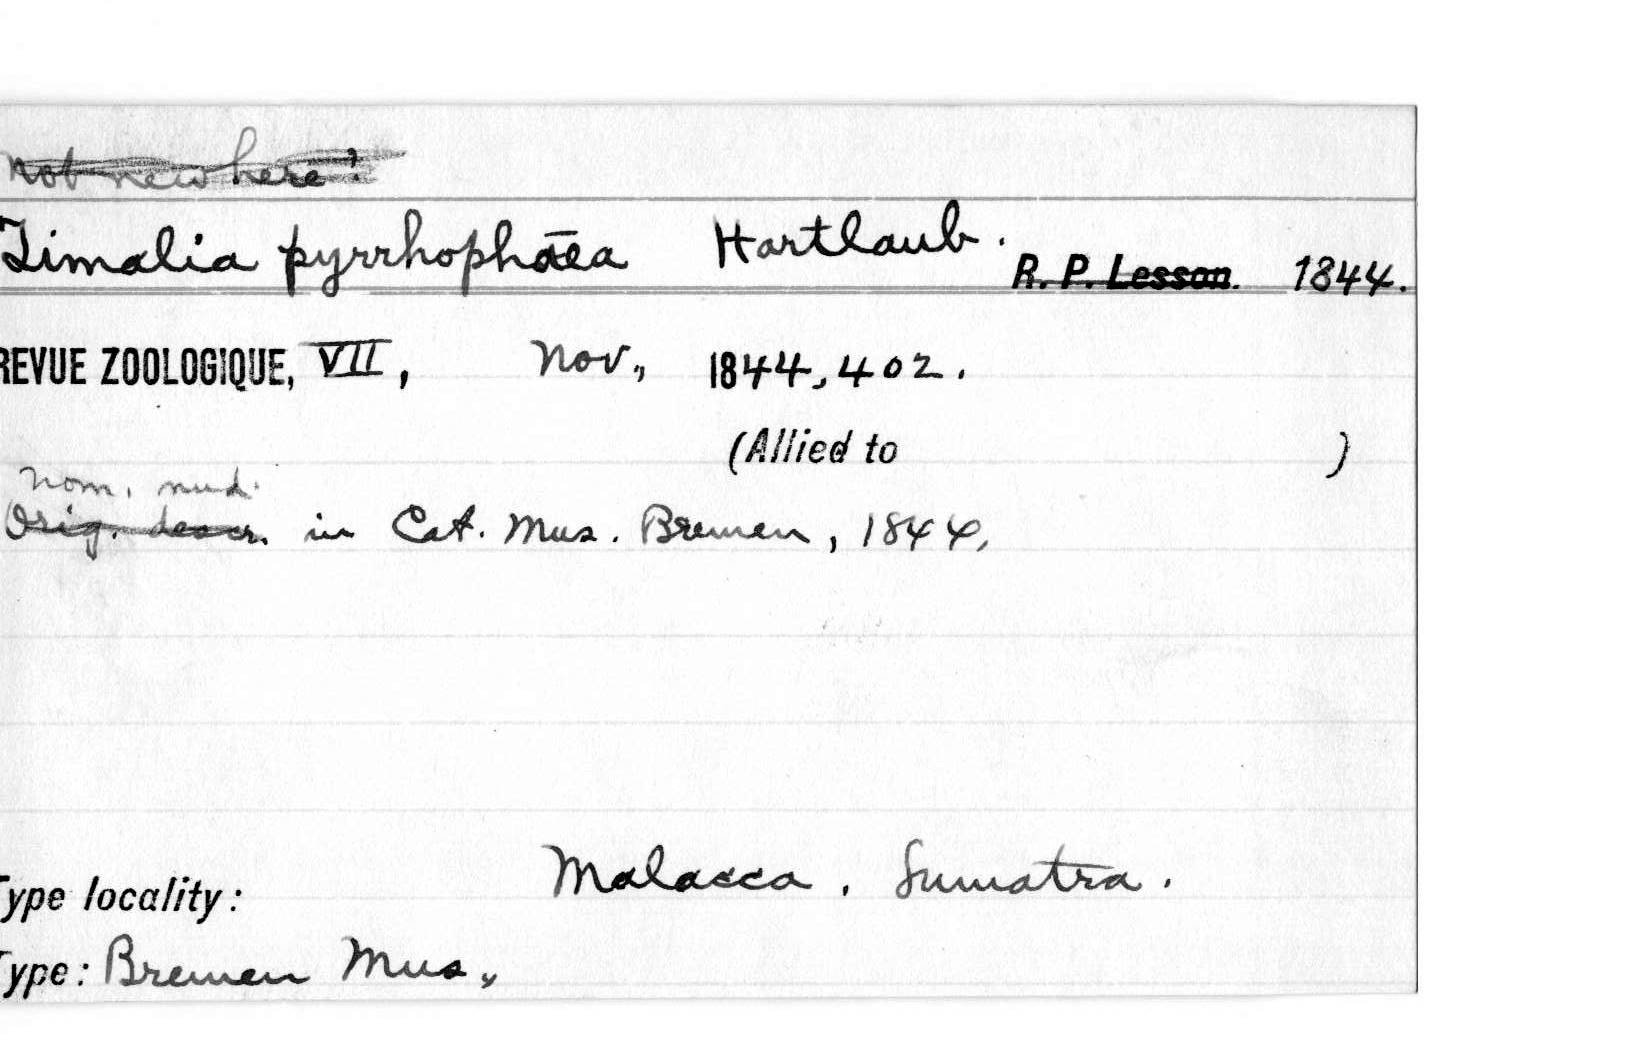 not new here!
Timalia pyrrhophaea Hartlaub. R. P. Lesson. 1844.
REVUE ZOOLOGIQUE, VII, Nov., 1844, 402.
(Allied to )
nom. nud.
Orig. descr. in Cat. Mus. Bremen, 1844,
Type locality: Malacca. Sumatra.
Type: Bremen Mus.,